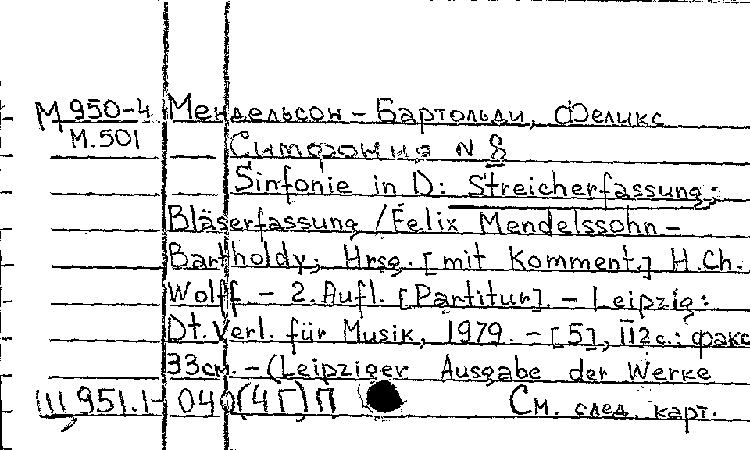 М 950-4 Мендельсон-Бартольди, Феликс
М.501 Симфония N 8
Sinfonie in D: Streicherfassung;
Bläserfassung / Felix Mendelssohn-
Bartholdy; Hrsg. [mit Komment.] H.Ch.
Wolff. - 2. Aufl. [Partitur]. - Leipzig:
Dt. Verl. für Musik, 1979. - [5], 112 с.: факс
33см. - (Leipziger Ausgabe der Werke
Ш 951.1- 040(4Г)П См. след. карт.